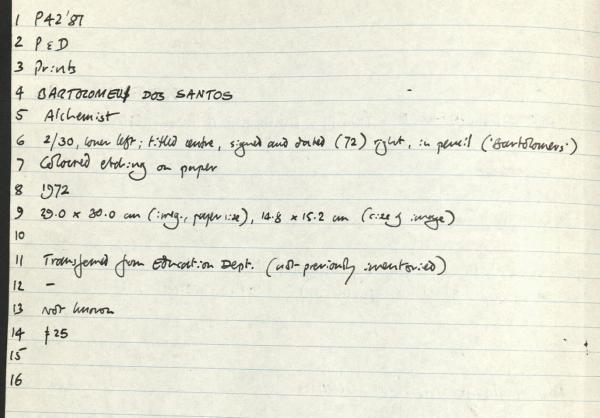 1 P42'87
2 P & D
3 Prints
4 BARTOLOMEU DOS SANTOS
5 Alchemist
6 2/30, lower left; titled centre, signed and dated (72) right, in pencil ('Bartolomeus')
7 Coloured etching on paper
8 1972
9 29.0 x 30.0 cm (irreg., paper size), 14.8 x 15.2 cm (size of image)
10
11 Transferred from Education Dept. (not previously inventoried)
12 –
13 not known
14 £25
15
16